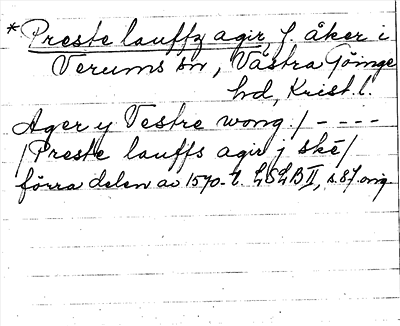 *Preste lauffz agir, f. åker i
Verums sn, Västra Göinge
hd, Krist. l.
Ager y Vestre wong / - - - -
/ Preste lauffs agir j ské /
förra delen av 1570-t. LSLB II, s. 87. orig.